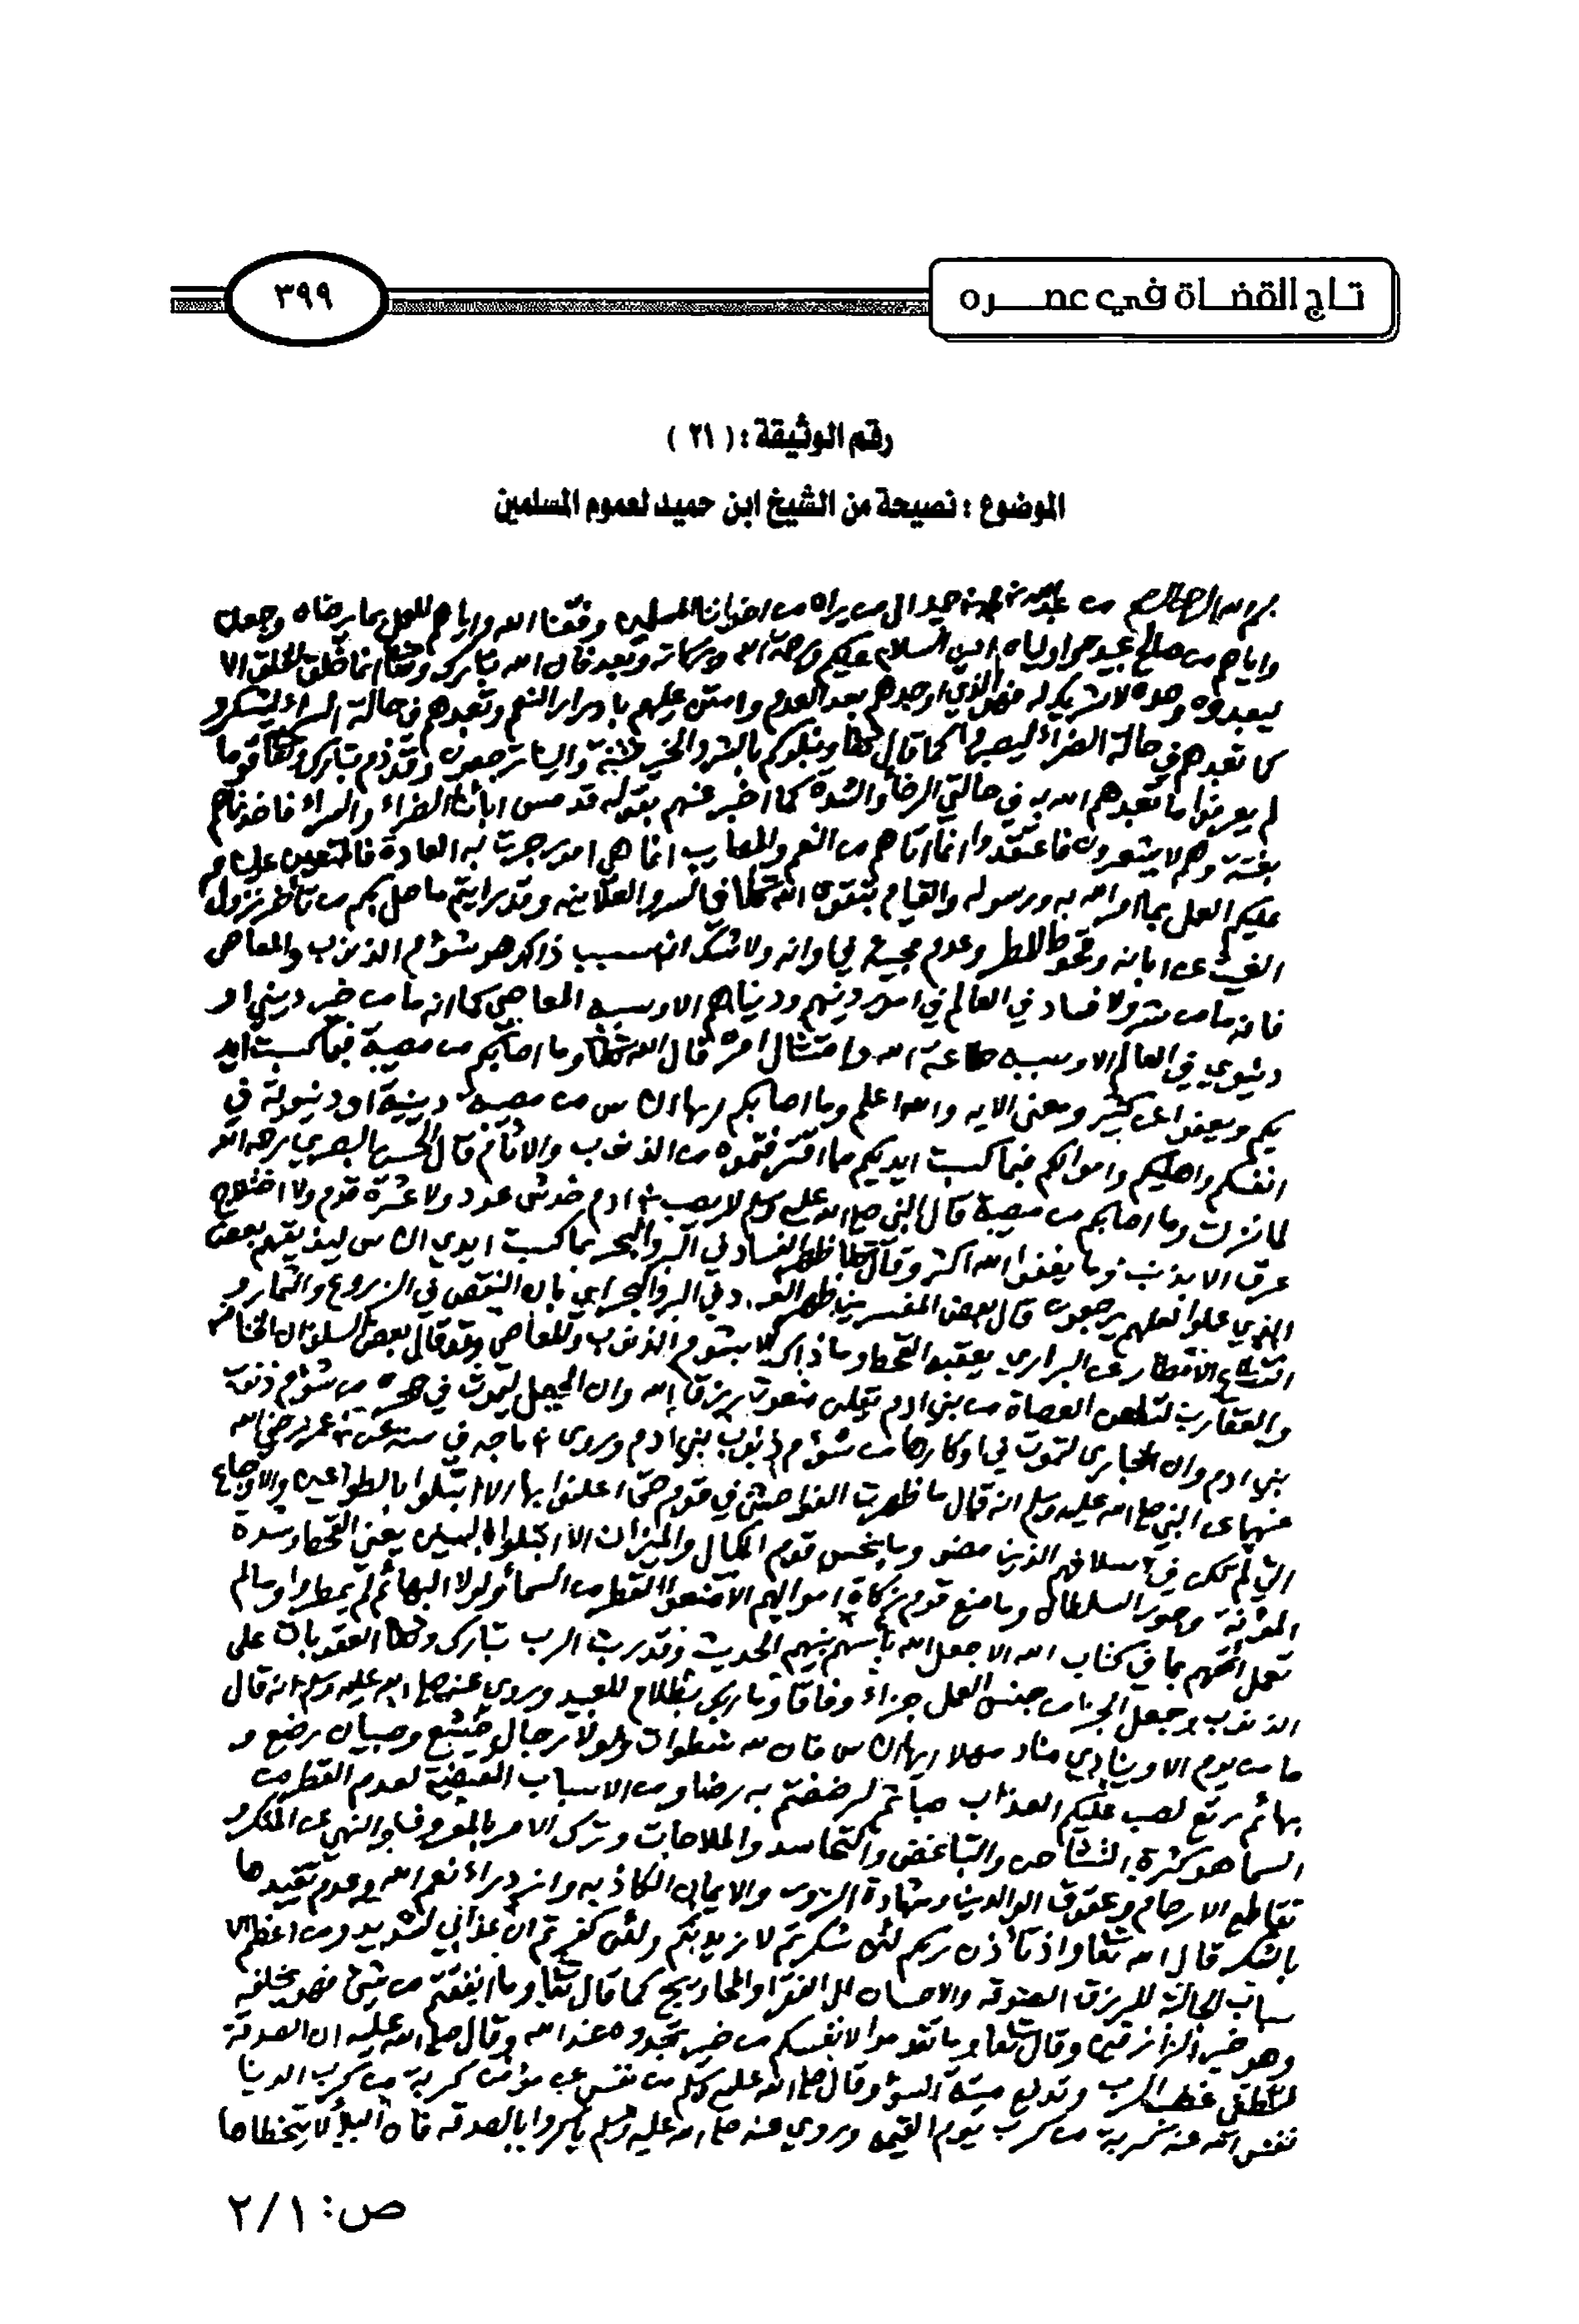 تاج القضاة في عصره
٣٩٩
رقم الوثيقة : ( ٢١ )
الموضوع : نصيحة من الشيخ ابن حميد لعموم المسلمين
بسم الله الرحمن الرحيم من عبدالله بن محمد بن حميد الى من يراه من اخواننا المسلمين وفقنا الله واياهم للعمل بما يرضاه وجعلنا
واياهم من صالح عبيده واولياه امين السلام عليكم ورحمة الله وبركاته وبعد فان الله تبارك وتعالى انما خلق الخلق الا
ليعبدوه وحده لا شريك له فهو الذي اوجدهم بعد العدم وامتن عليهم بادرار النعم وتعبدهم في حالة السراء ليشكرو
كما تعبدهم في حالة الضراء ليصبروا كما قال تعالى ونبلوكم بالشر والخير فتنة والينا ترجعون وقد ذم تبارك وتعالى قوما
لم يعرفوا ما تعبدهم الله به في حالتي الرخأ والشدة كما اخبر عنهم بقوله قد مس ابائنا الضراء والسراء فاخذناهم
بغتة وهم لا يشعرون فاعتقدوا انما اتاهم من النعم والمصايب انما هي امور جرت به العادة فالمتعين علينا و
عليكم العمل بما امر الله به ورسوله والقيام بتقوى الله تعالى في السر والعلانيه وقد رايتم ما حل بكم من تأخر نزول
الغيث عن ابانه وقحوط المطر وعدم مجيئه في اوانه ولا شك ان سبب ذالك هو شؤم الذنوب والمعاصي
فانه ما من شر ولا فساد في العالم في امور دينهم ودنياهم الا وسببه المعاصي كما انه ما من خير ديني او
دنيوي في العالم الا وسببه طاعة الله وامتثال امره قال الله تعالى وما اصابكم من مصيبة فبما كسبت ايد
يكم ويعفوا عن كثير ومعنى الايه والله اعلم وما اصابكم ايها الناس من مصيبة دينية او دنيوية في
انفسكم واهليكم واموالكم فبما كسبت ايديكم مما اقترفتموه من الذنوب والاثام قال الحسن البصري رحمه الله
لما نزلت وما اصابكم من مصيبة قال النبي صلى الله عليه وسلم لا يصيب ابن ادم خدش عود ولا عثرة قدم ولا اختلاج
عرق الا بذنب وما يعفوا الله اكثر وقال تعالى ظهر الفساد في البر والبحر بما كسبت ايدي الناس ليذيقهم بعض
الذي عملوا لعلهم يرجعون قال بعض المفسرين ظهر الفساد في البر والبحر اي بان النقص في الزروع والثمار و
انقطاع الأمطار عن البراري يعقبه القحط وما ذاك الا بشؤم الذنوب والمعاصي وقد قال بعض السلف ان الخنافس
والعقارب لتلعن العصاة من بني ادم تقول منعوت برزقا الله وان الجعل ليموت في جحره من شؤم ذنوب
بني ادم وان الحبارى لتموت في اوكارها من شؤم ذنوب بني ادم وروى ابن ماجه في سننه عن ابن عمر رضي الله
عنهما عن النبي صلى الله عليه وسلم انه قال ما ظهرت الفواحش في قوم حتى اعلنوا بها الا ابتلوا بالطواعين والاوجاع
التي لم تكن في اسلافهم الذين مضو وما بخس قوم المكيال والميزان الا ابتلوا بالسنين يعني القحط وشدة
المؤنة وجور السلطان وما منع قوم زكاة اموالهم الا منعوا القطر من السمأ ولولا البهائم لم يمطروا وما لم
تعمل أئمتهم بما في كتاب الله الا جعل الله بأسهم بينهم الحديث وقد رتب الرب تبارك وتعالى العقوبات على
الذنوب وجعل الجزاء من جنس العمل جزاءً وفاقا وما ربك بظلام للعبيد وروي عنه صلى الله عليه وسلم انه قال
ما من يوم الا وينادي مناد مهلا ايها الناس فان لله سطوات ولولا رجال خشع وصبيان رضع و
بهائم رتع لصب عليكم العذاب صبا ثم لرضضتم به رضا ومن الاسباب المفضية لعدم القطر من
السما هو كثرة التشاحن والتباغض والتحاسد والملاحات وترك الامر بالمعروف والنهي عن المنكر و
تقاطع الارحام وعقوق الوالدين وشهادة الزور والايمان الكاذبه وازدراء نعم الله وعدم تقييدها
بالشكر قال الله تعالى واذ تأذن ربكم لئن شكرتم لازيدنكم ولئن كفرتم ان عذابي لشديد ومن اعظم الا
سباب الجالبة للرزق الصدقه والاحسان الى الفقرا والمحاويج كما قال تعالى وما انفقتم من شئ فهو يخلفه
وهو خير الرازقين وقال تعالى وما تقدموا لانفسكم من خير تجدوه عند الله وقال صلى الله عليه ان الصدقة
لتطفي غضب الرب وتدفع ميتة السؤ وقال صلى الله عليه وسلم من نفس عن مؤمن كربة من كرب الدنيا
نفس الله عنه كربة من كرب يوم القيمه وروي عنه صلى الله عليه وسلم باكروا بالصدقه فان البلأ لا يتخطاها
ص: ٢/١